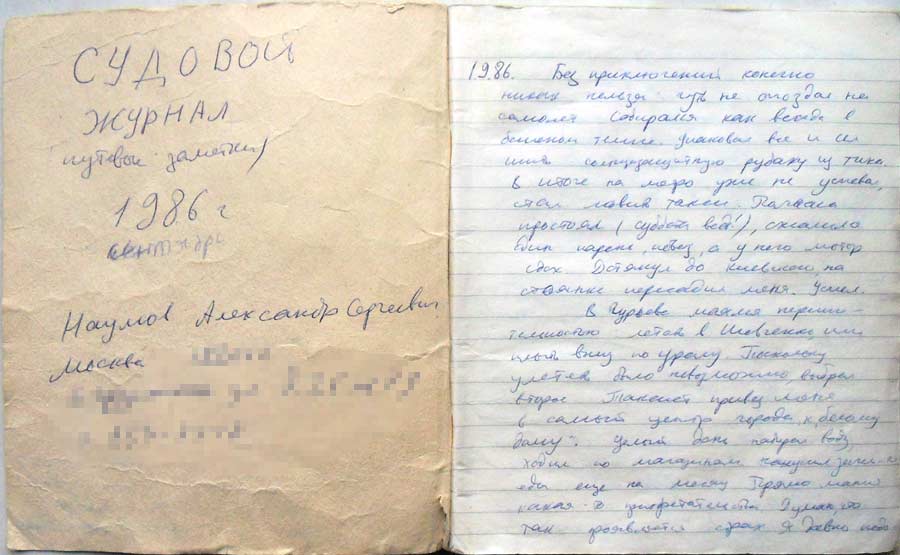 СУДОВОЙ
ЖУРНАЛ
путевые заметки
1986 г
сентябрь
Наумов Александр Сергеевич
Москва
1986. Без приключений конечно
никак нельзя. Чуть не опоздал на
самолет. Собирался как всегда в
бешеном темпе. Упаковал все и сел
шить солнцезащитную рубаху из тика.
В итоге на метро уже не успевал,
стал ловить такси. Полчаса
простоял (суббота ведь!),
один парень повез, а у него мотор
сдох. Дотянул до Киевской, на
стоянке пересадил меня. Успел.
В Гурьеве маялся нереши-
тельностью лететь в Шевченко или
плыть вниз по Уралу. Поскольку
улететь было невозможно, выбрал
второе. Таксист привез меня
в самый центр города, к белому
дому. Целый день набирал воду,
ходил по магазинам,
еды еще на месяц. Прямо мания
какая-то Думаю, что
так проявляется страх. Я давно